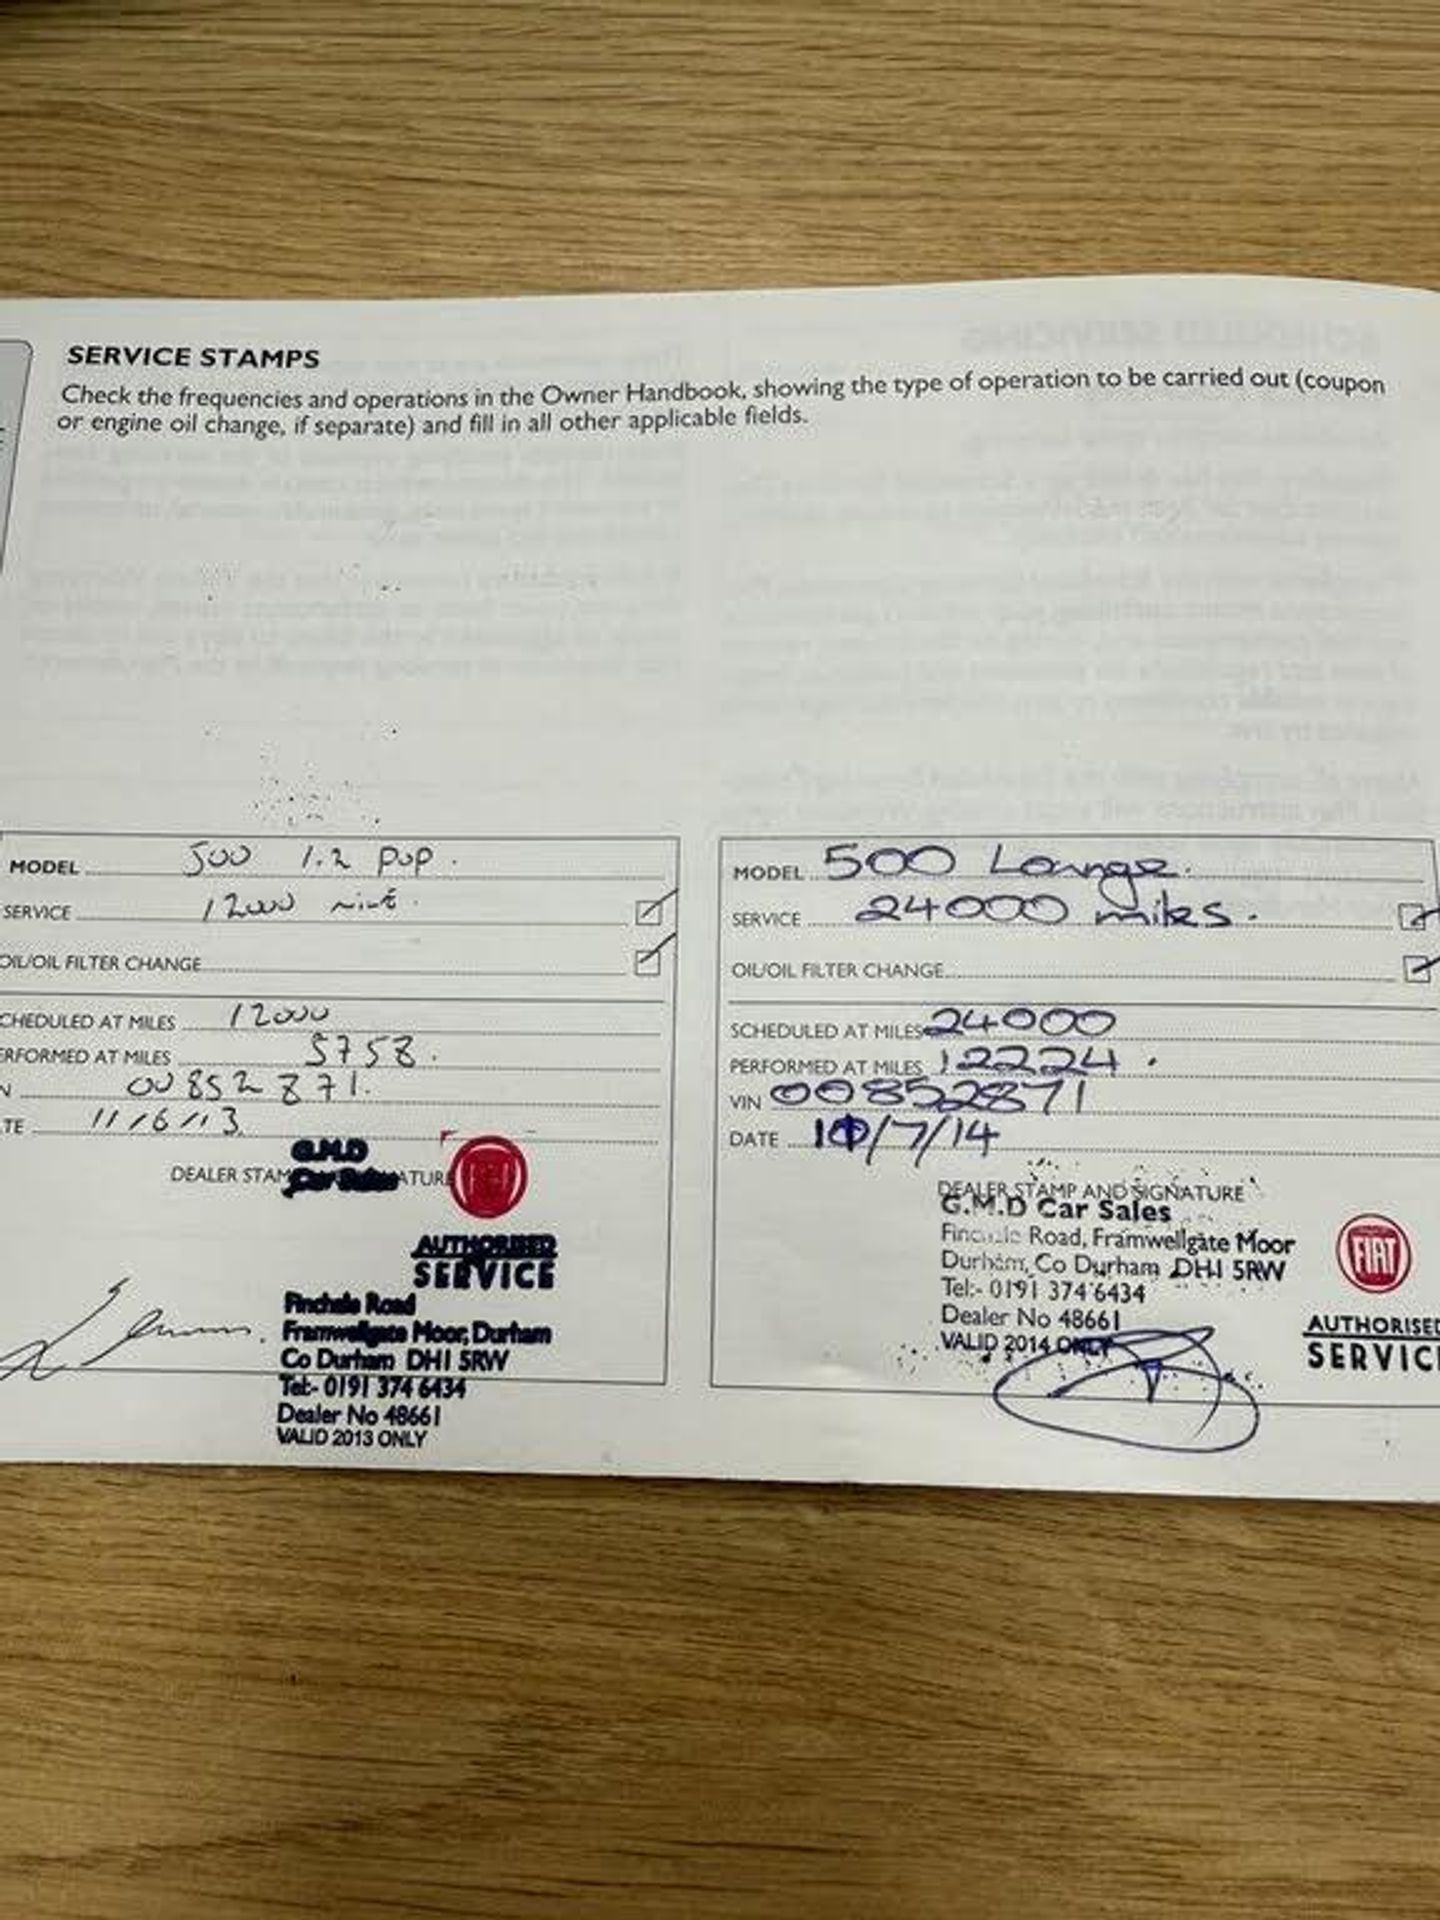 SERVICE STAMPS
Check the frequencies and operations in the Owner Handbook, showing the type of operation to be carried out (coupon
or engine oil change, if separate) and fill in all other applicable fields.
MODEL 500 1.2 pop.
SERVICE 12000
OIL/OIL FILTER CHANGE
CHEDULED AT MILES 12000
ERFORMED AT MILES 5758.
N 00852871.
TE 11/6/13
DEALER STAM ATURE
G.M.D
Car Sales
AUTHORISED
SERVICE
Finchale Road
Framwellgate Moor, Durham
Co Durham DH1 5RW
Tel:- 0191 374 6434
Dealer No 48661
VALID 2013 ONLY
MODEL 500 Lounge.
SERVICE 24000 miles.
OIL/OIL FILTER CHANGE
SCHEDULED AT MILES 24000
PERFORMED AT MILES 12224.
VIN 00852871
DATE 10/7/14
DEALER STAMP AND SIGNATURE
G.M.D Car Sales
Finchale Road, Framwellgate Moor
Durham, Co Durham DH1 5RW
Tel:- 0191 374 6434
Dealer No 48661
VALID 2014 ONLY
FIAT
AUTHORISED
SERVIC